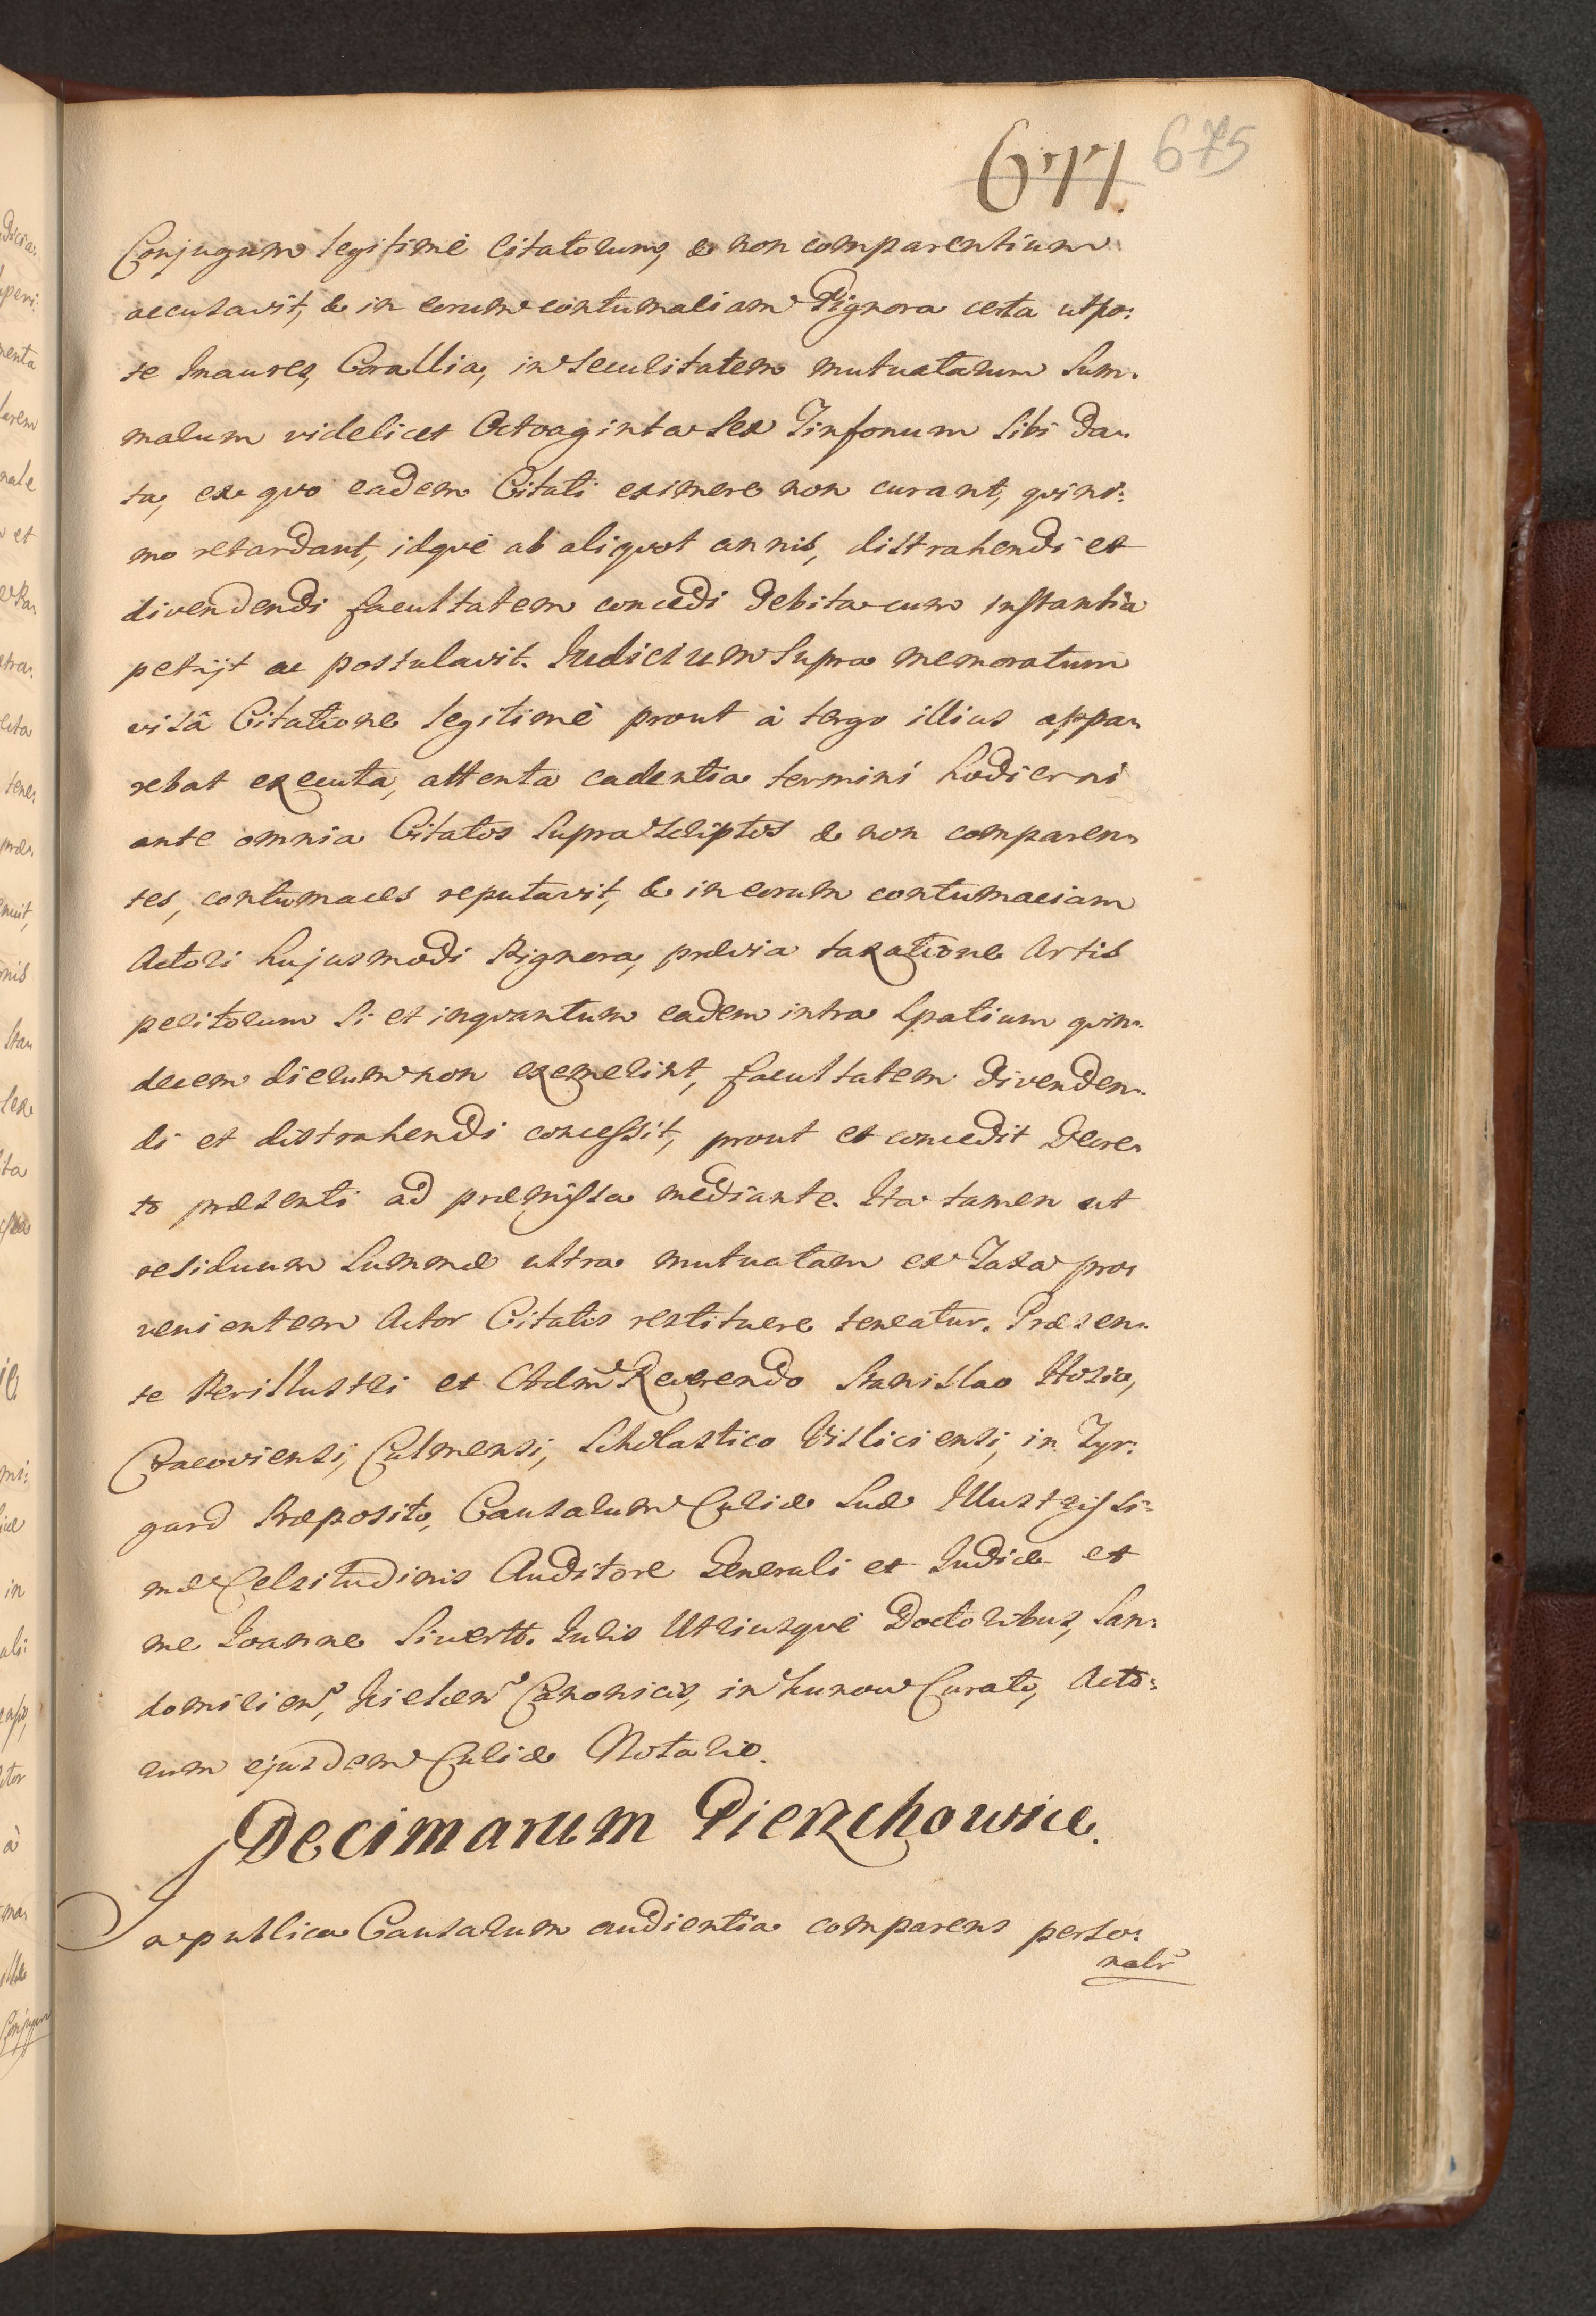 677. 675
Conjugum legitimè citatorum, & non comparentium
accusavit, & in eorum contumaciam Pignora certa utpo:
te Inaures, Corallia, in securitatem mutuatarum Sum:
marum videlicet Octoaginta Sex Tinfonum sibi da:
ta, ex quo eadem Citati eximere non curant, quini:
mo retardant, idquè ab aliquot annis, distrahendi et
divendendi facultatem concedi debita cum instantia
petijt ac postulavit. Judicium supra memoratum
visâ Citatione legitimè prout à tergo illius appa:
rebat executa, attenta cadentia termini hodierni
ante omnia Citatos supra scriptos & non comparen:
tes, contumaces reputavit, & in eorum contumaciam
Actori hujusmodi Pignora, prævia taxatione Artis
peritorum si et inquantum eadem intra spatium quin:
decem dierum non exemerint, facultatem divenden:
di et distrahendi concessit, prout et concedit Decre:
to præsenti ad præmissa mediante. Ita tamen ut
residuum Summæ ultra mutuatam ex Taxa pro:
venientem Actor Citatis restituere teneatur. Præsen:
te Perillustri et Adm Reverendo Stanislao Hosio,
Cracoviensi, Culmensi, Scholastico Visliciensi, in Zyr:
gard Præposito, Causarum Curiæ Suæ Illustrissi:
mæ Celsitudinis Auditore Generali et Judice et
me Joanne Siwertt. Juris Utriusquè Doctoribus, San:
domirien, Kielcen Canonicis, in Kunow Curato, Acto:
rum ejusdem Curiæ Notario.
Decimarum Pierzchowice.
In publica Causarum audientia comparens perso:
nalr